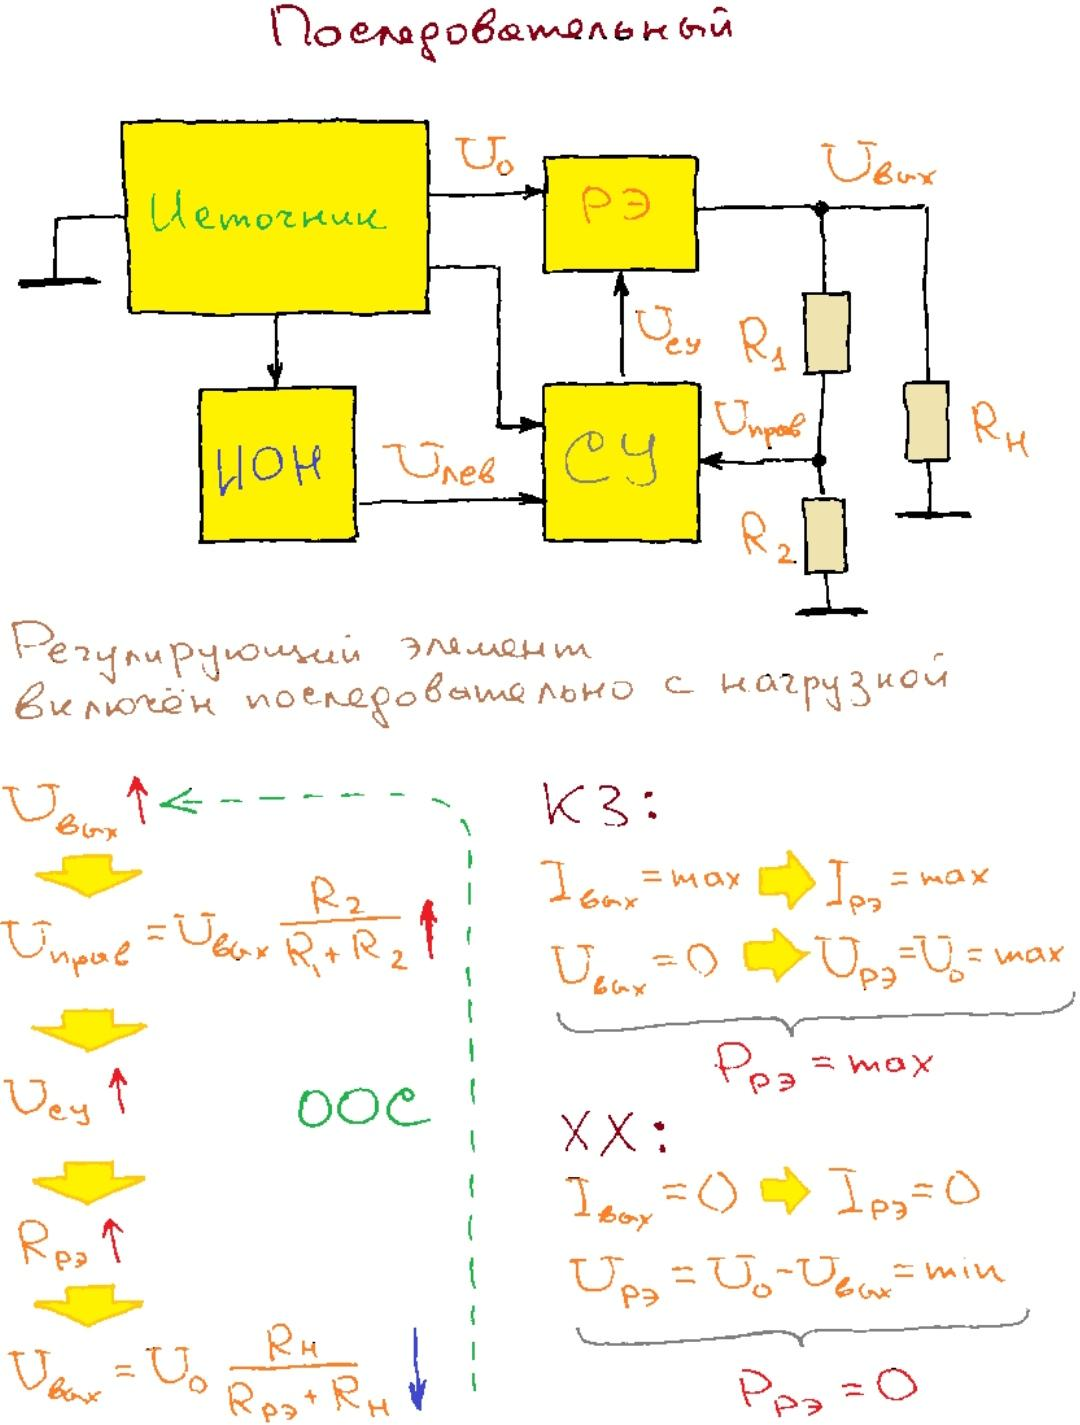 Последовательный
Источник
U₀
РЭ
Uвых
Uсу
R₁
ИОН
Uлев
СУ
Uправ
Rн
R₂
Регулирующий элемент
включён последовательно с нагрузкой
Uвых ↑
Uправ = Uвых R₂ / (R₁ + R₂) ↑
Uсу ↑
ООС
Rрэ ↑
Uвых = U₀ Rн / (Rрэ + Rн) ↓
КЗ:
Iвых = max ➡ Iрэ = max
Uвых = 0 ➡ Uрэ = U₀ = max
Pрэ = max
ХХ:
Iвых = 0 ➡ Iрэ = 0
Uрэ = U₀ - Uвых = min
Pрэ = 0